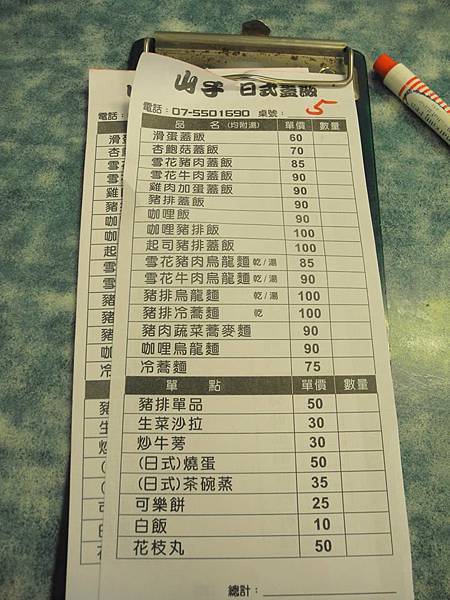 山子 日式蓋飯
電話：07-5501690 桌號： 5
品 名 (均附湯) 單價 數量
滑蛋蓋飯 60
杏鮑菇蓋飯 70
雪花豬肉蓋飯 85
雪花牛肉蓋飯 90
雞肉加蛋蓋飯 90
豬排蓋飯 90
咖哩飯 90
咖哩豬排飯 100
起司豬排蓋飯 100
雪花豬肉烏龍麵 乾/湯 85
雪花牛肉烏龍麵 乾/湯 90
豬排烏龍麵 乾/湯 100
豬排冷蕎麵 乾 100
豬肉蔬菜蕎麥麵 90
咖哩烏龍麵 90
冷蕎麵 75
單 點 單價 數量
豬排單品 50
生菜沙拉 30
炒牛蒡 30
(日式)燒蛋 50
(日式)茶碗蒸 35
可樂餅 25
白飯 10
花枝丸 50
總計：